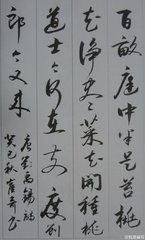 百畝庭中半是苔桃
花淨盡菜花開種桃
道士今何在前度刘
郎今又来
唐劉禹錫詩
癸巳秋崔書